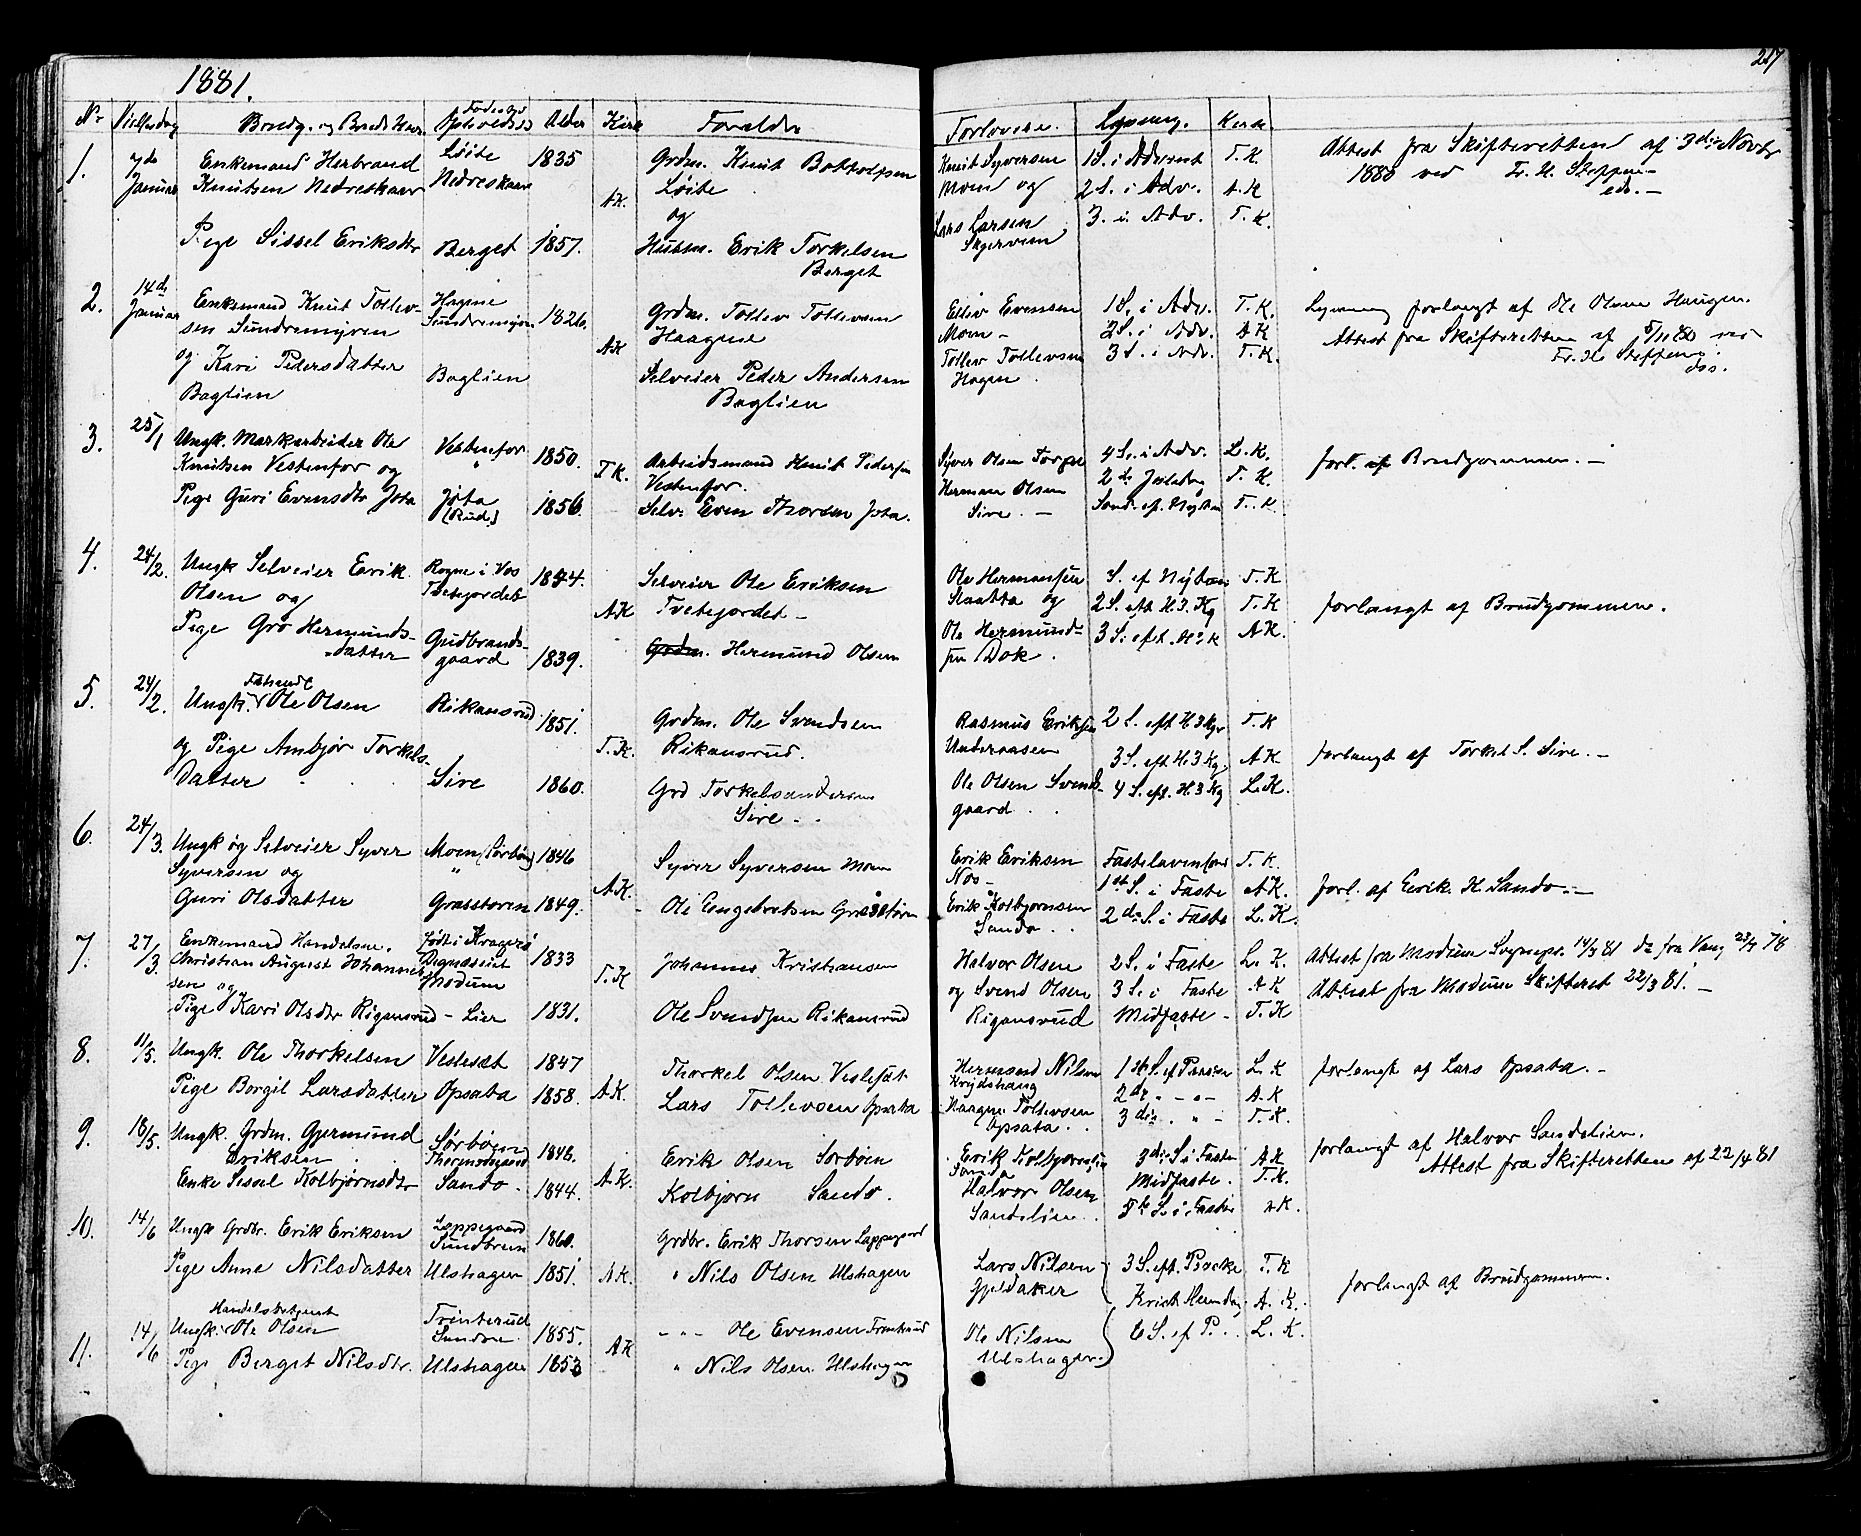 1881.
217
Nr Vielsesdag Brudg. og Bruds Navn Fødested Opholdssted Alder Kirke Forældre Forlovere. Lysning. Kirke
1. 7de Januar Enkemand Herbrand Løite 1835 Grdm. Knut Bottolfsen Knut Syversen 1 S. i Advent T.K. Attest fra Skifteretten af 3die Novbr
Knutsen Nedreskaar Nedreskaar A.K. Løite Moen og 2 S. i Adv. A.K 1880 ved Fr. H. Steffens
og Lars Larsen 3. i. Adv. T.K.
Pige Sissel Eriksdtr Berget 1857. Husm. Erik Torkelsen Skjervem
Berget
2. 14de Januar Enkemand Knut Tollev- Hagene 1826. Grdm. Tollev Tollevsen Eiliv Evensen 1 S. i Adv. T.K. Lysning forlangt af Ole Olsen Haugen.
sen Sundremyren Sundremyren A.K Haagene Moen 2 S. i Adv. A K Attest fra Skifteretten af 5/11 80 ved
og Kari Pedersdatter Baglien Selveier Peder Andersen Tollev Tollevsen 3 S. i Adv. T.K. Fr. H. Steffens
Baglien Baglien Hagen.
3. 25/1 Ungk. Markarbeider Ole Vestenfor 1850. T.K. Arbeidsmand Knut Peders. Syver Olsen Torpe 4 S. i Adv. L.K. forl. af Brudgommen. —
Knutsen Vestenfor og Vestenfor. Herman Olsen 2de Juledag T. K.
Pige Guri Evensdtr Jota Jota (Rud) 1856. Selv. Even Thorsen Jota. Sire. — Sønd. ef. Nytaar T.K.
4. 24/2. Ungk Selveier Eerik Rogne i Vos 1844. Selveier Ole Eriksen Ole Hermansen S. ef Nytaar T.K
Olsen og Tvetejordet A K Tvetejordet — Slaatta og 2 S. eft H.3.Kg T.K forlangt af Brudgommen.
Pige Gro Hermunds- Gudbrands- Ole Hermund- 3 S. eft. H 3 K A K.
datter gaard 1839. Grdm. Hermund Olsen sen Dok.
5. 24/2. Ungk. Ole Olsen Rikansrud. 1851. Grdm. Ole Svendsen Rasmus Eriksen 2 S. eft H 3 Kgr T.K
og Pige Ambjør Torkels- T.K. Rikansrud. Underaasen 3 S. eft H. 3 Kg. A K forlangt af Torkel S. Sire. —
datter Sire 1860. Grd Torkelsandersen Ole Olsen Svends- 4 S. eft. H. 3 Kg L.K.
Sire. gaard
6. 24/3. Ungk og Selveier Syver Moen (Sørbøn) 1846 Syver Syversen Moen Erik Eriksen Fastelavenssønd T.K.
Syversen og A.K. Nos 1st S. i Faste A K. forl. af Eerik K. Sando. —
Guri Olsdatter Græsstoren 1849. Ole Engebretsen Græsstøren Erik Kolbjørnsen 2de S. i Faste L.K.
Sando.
7. 27/3. Enkemand Handelsm. født i Kragerø 1833 Johannes Kristiansen Halvor Olsen 2 S. i Faste L. K. Attest fra Modum Sognepr. 14/3 81 do fra Vang 23/7 78
Christian August Johannes- Modum T.K og Svend Olsen 3 S. i Faste A K Attest fra Modum Skifteret 22/3 81. —
sen og
Pige Kari Olsdtr Rigansrud - Lier 1831. Ole Svendsen Rikansrud Rigansrud Midfaste - T.K
8. 11/5. Ungk. Ole Thorkelsen Veslesæt 1847 Thorkel Olsen Veslesæt Hermand Nilsen 1ste S. ef Paaske L. K forlangt af Lars Opsata. —
Pige Borgil Larsdatter Opsata 1858. A.K. Lars Tollevsen Opsata Krydshaug 2de " - " - A.K
Haagne Tollevsen Opsata. 3die. " - T.K.
9. 18/5. Ungk. Grdm. Gjermund Sørbøen 1846. Erik Olsen Sørbøen Erik Kolbjørnsen 3die S. i Faste A K forlangt af Halvor Sandelien.
Eriksen Thormodsgaard Sando Midfaste. T.K. Attest fra Skifteretten af 22/4 81
Enke Sissel Kolbjørnsdtr Sando. 1844. A.K. Kolbjørn Sando. Halvor Olsen Sandelien. 5te S. i Faste A K.
10. 14/6 Ungk Grdbr. Erik Eriksen Lappegaard Sundbrein 1860. Grdbr. Erik Thorsen Lappegaard Lars Nilsen 3 S. eft. Paaske T.K
Pige Anne Nilsdatter Ulshagen 1851. A K. " Nils Olsen Ulshagen Gjeldaker Krist Hemdag A. K. forlangt af Brudgommen.
11. 14/6 Handelsbetjent Trinterud
Ungk. Ole Olsen Sundre 1855. A K " " - Ole Evensen Trinterud Ole Nilsen 6 S. ef P. L. K.
Pige Berget Nilsdtr. Ulshagen 1853 " Nils Olsen Ulshagen Ulshagen.